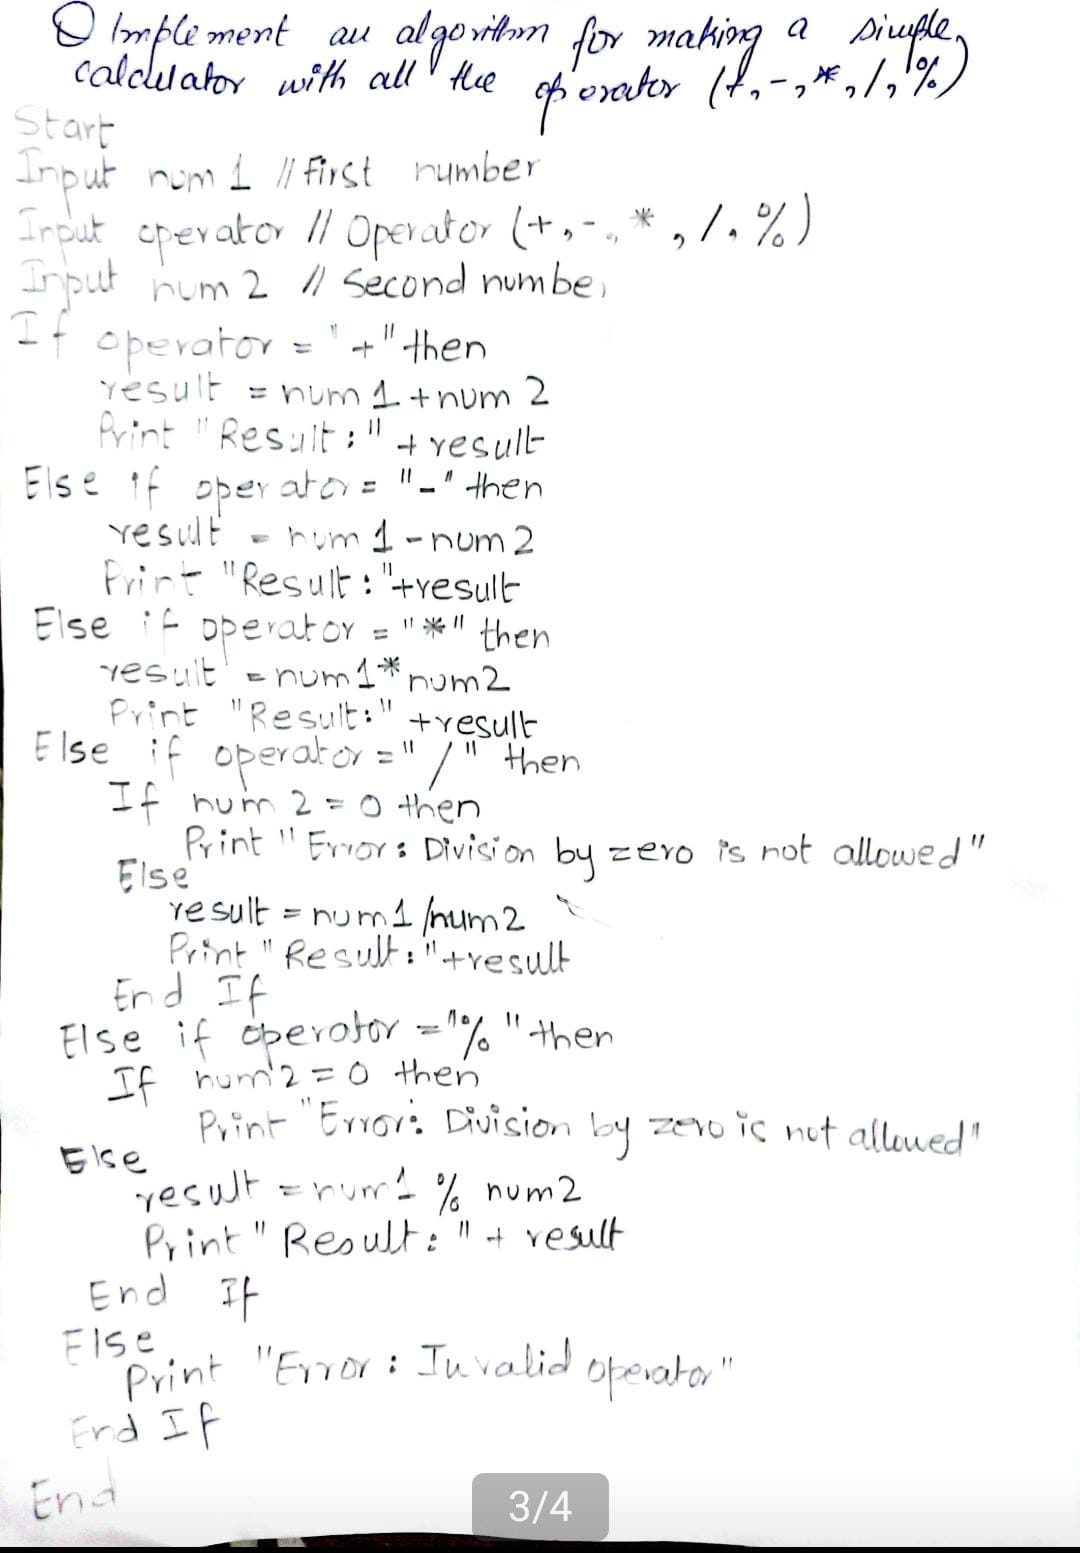 Q Implement an algorithm for making a simple
calculator with all the operator (+,-,*,/,%)
Start
Input num 1 // first number
Input operator // Operator (+,-,*,/,%)
Input num 2 // Second number
If operator = "+" then
result = num 1 + num 2
Print "Result:" + result
Else if operator = "-" then
result = num 1 - num 2
Print "Result:" + result
Else if operator = "*" then
result = num 1 * num 2
Print "Result:" + result
Else if operator = "/" then
If num 2 = 0 then
Print "Error: Division by zero is not allowed"
Else
result = num 1 / num 2
Print "Result:" + result
End If
Else if operator = "%" then
If num 2 = 0 then
Print "Error: Division by zero is not allowed"
Else
result = num 1 % num 2
Print "Result:" + result
End If
Else
Print "Error: Invalid operator"
End If
End
3/4